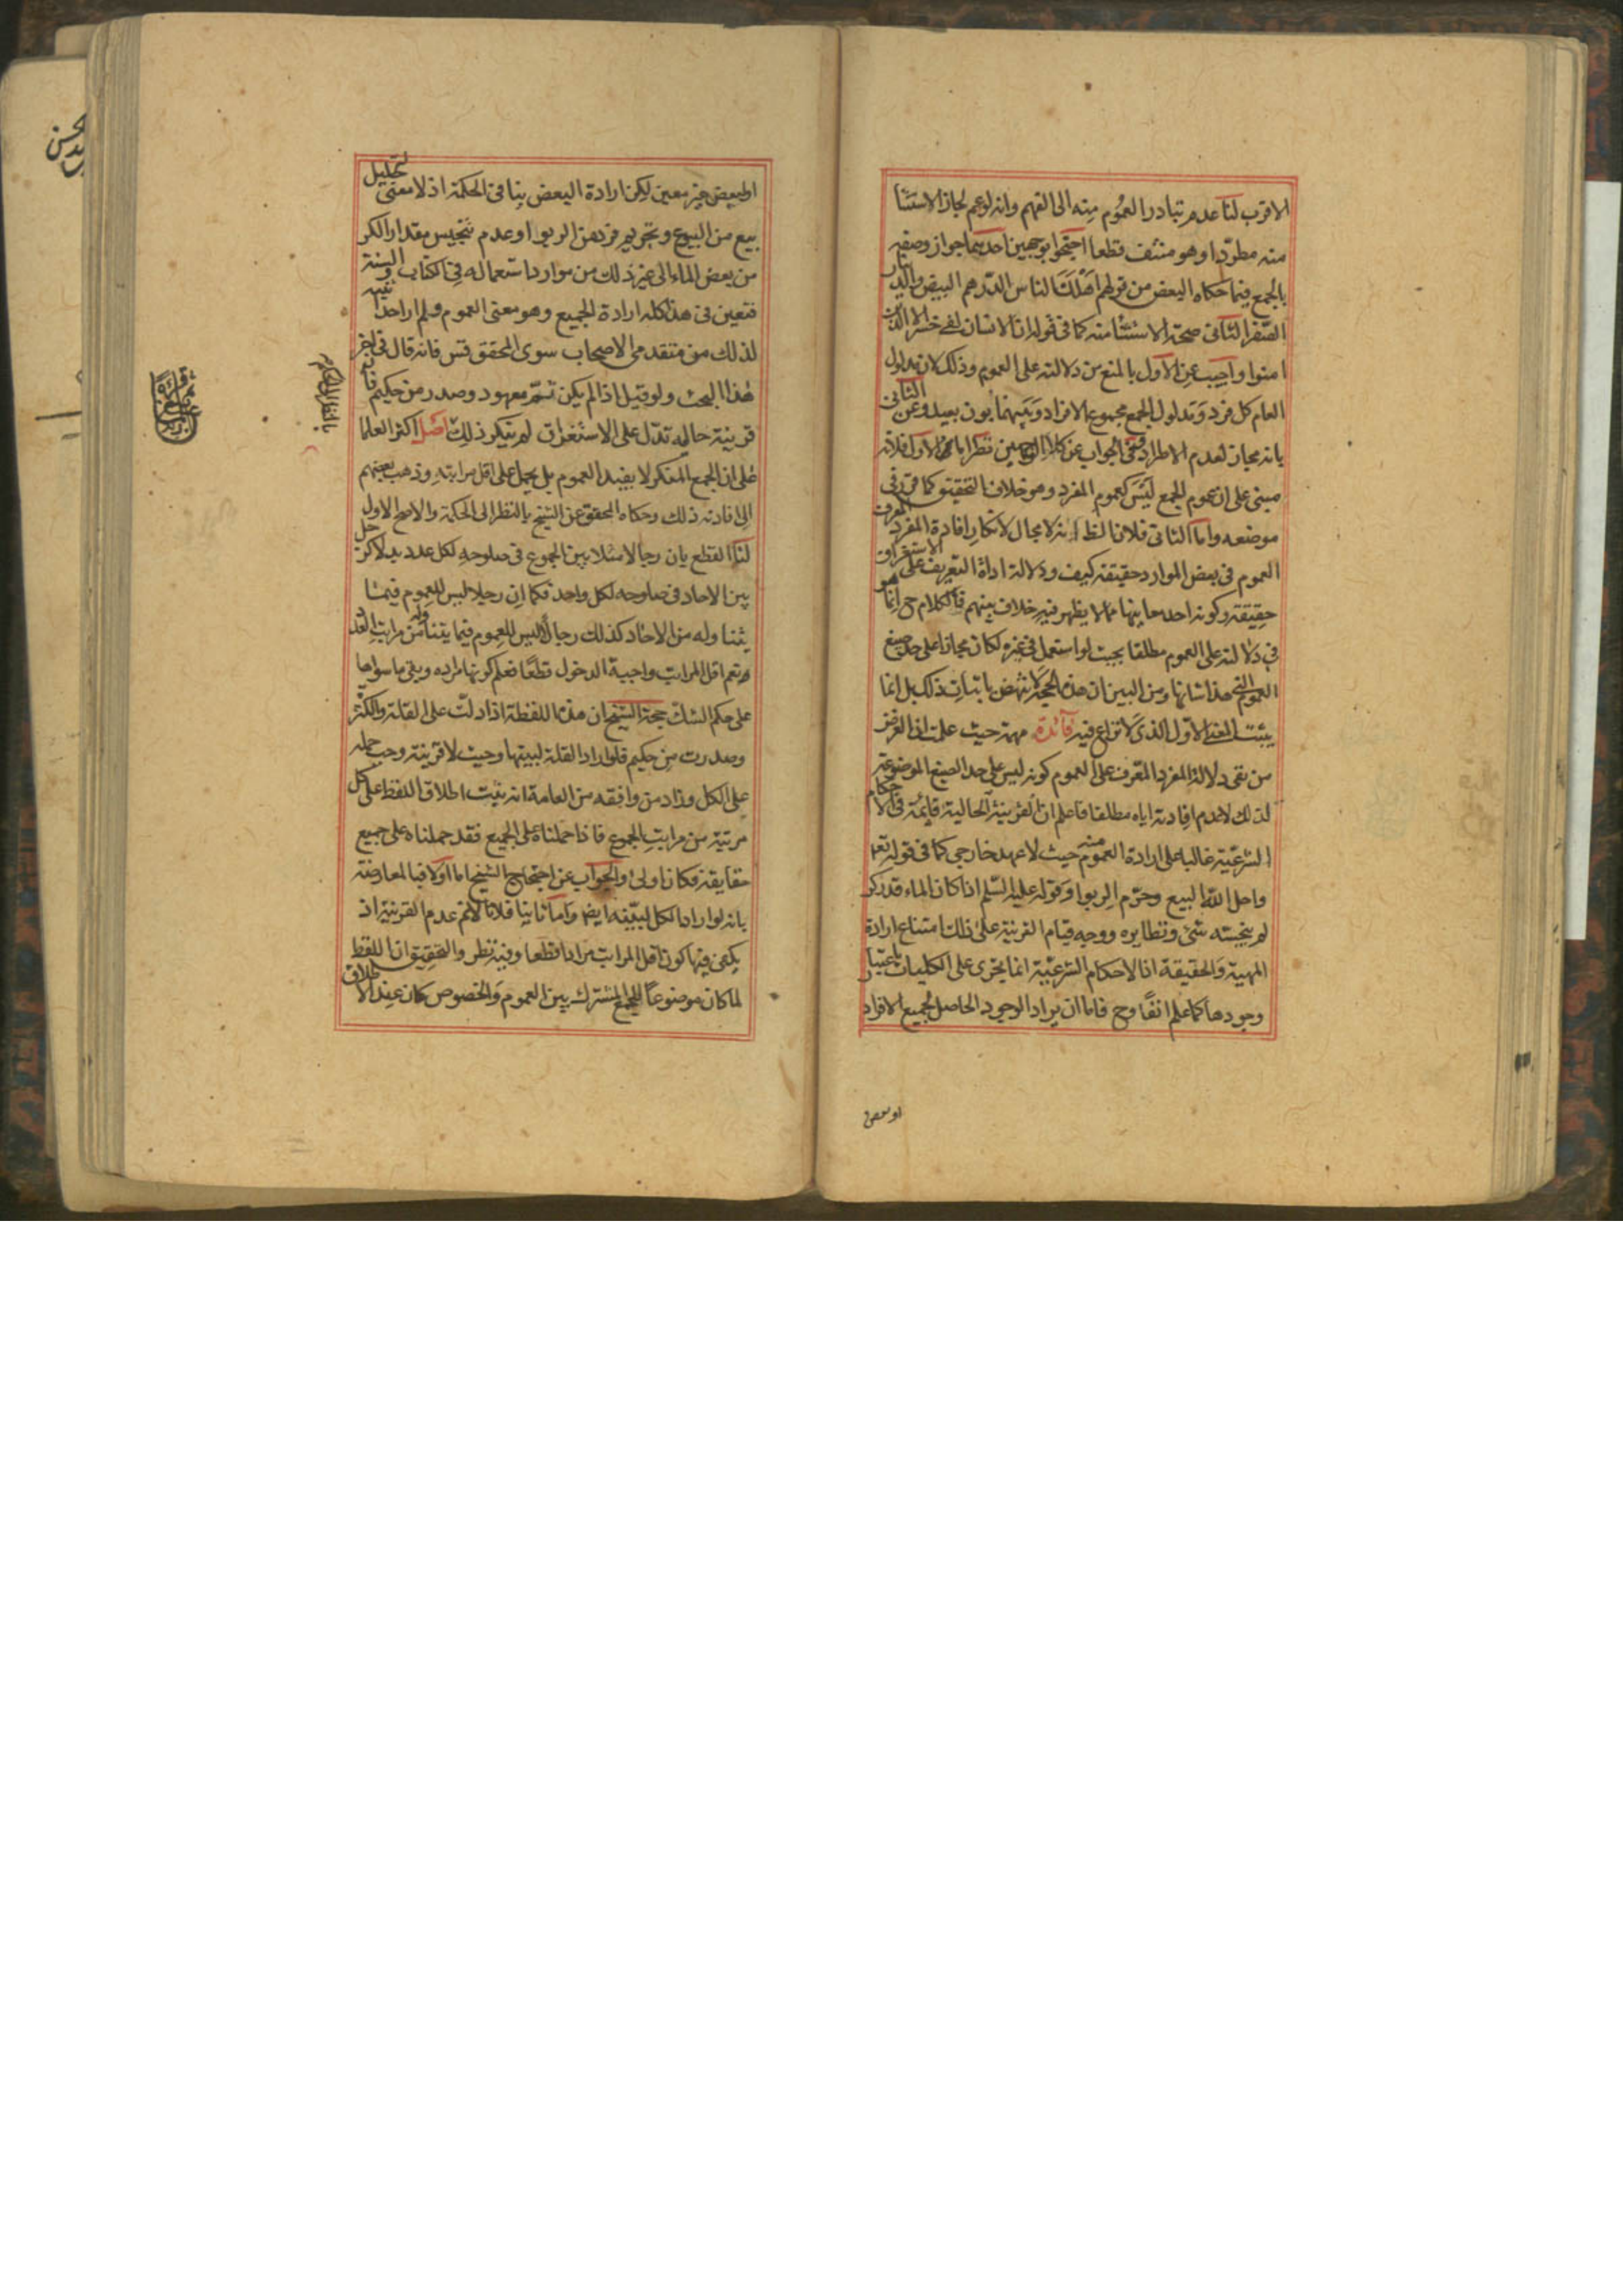 الاقرب لنا عدم تبادر العموم منه الى الفهم وانه لوعم لجاز الاستثنا
منه مطردا وهو منتف قطعا احتجوا بوجهين احدهما جواز وصفه
بالجمع فيما حكاه البعض من قولهم اهلك الناس الدرهم البيض والدينار
الصفر الثانى صحة الاستثنا منه كما فى قوله ان الانسان لفى خسر الا الذين
امنوا واجيب عن الاول بالمنع من دلالته على العموم وذلك لان مدلول
العام كل فرد ومدلول الجمع مجموع الافراد وبينهما بون بعيد وعن الثانى
بانه مجاز لعدم الاطراد وفى الجواب عن كلا الوجهين نظر اما الاول فلانه
مبنى على ان عموم الجمع ليس كعموم المفرد وهو خلاف التحقيق كما قرر فى
موضعه واما الثانى فلان الظ انه لا مجال لانكار افادة المفرد المعرف
العموم فى بعض الموارد حقيقة كيف ودلالة اداة التعريف على الاستغراق
حقيقة وكونه احد معانيها مما لا يظهر فيه خلاف بينهم فالكلام ح انما هو
فى دلالته على العموم مطلقا بحيث لو استعمل فى غيره لكان مجازا على حد صيغ
العموم التى هذا شانها ومن البين ان هذه الحجة لا تنهض باثبات ذلك بل انما
يثبت المعنى الاول الذى لا نزاع فيه فائدة مهمة حيث علمت ان الغرض
من نفى دلالة المفرد المعرف على العموم كونه ليس على حد الصيغ الموضوعة
لذلك لا عدم افادته اياه مطلقا فاعلم ان القرينة الحالية قائمة فى الاحكام
الشرعية غالبا على ارادة العموم منه حيث لا عهد خارجى كما فى قوله تعم
واحل الله البيع وحرم الربوا وقوله عليه السلم اذا كان الماء قدر كر
لم ينجسه شئ ونظايره ووجه قيام القرينة على ذلك امتناع ارادة
المهية والحقيقة اذ الاحكام الشرعية انما يجرى على الكليات باعتبار
وجودها كما علم انفا وح فاما ان يراد الوجود الحاصل لجميع الافراد
او ببعض
او لبعض غير معين لكن ارادة البعض ينافى الحكمة اذ لا معنى لتحليل
بيع من البيوع وتحريم فرد من الربوا وعدم تنجيس مقدار الكر
من بعض الماء الى غير ذلك من موارد استعماله فى الكتاب والسنة
فتعين فى هذا كله ارادة الجميع وهو معنى العموم ولم ار احدا تنبه
لذلك من متقدمى الاصحاب سوى المحقق قس فانه قال فى اخر
هذا البحث ولو قيل اذا لم يكن ثم معهود وصدر من حكيم فان
قرينة حاليه تدل على الاستغراق لم ينكر ذلك اصل اكثر العلما
على ان الجمع المنكر لا يفيد العموم بل يحمل على اقل مراتبه وذهب بعضهم
الى افادته ذلك وحكاه المحقق عن الشيخ بالنظر الى الحكمة والاصح الاول
لنا القطع بان رجالا مثلا بين الجموع فى صلوحه لكل عدد بدلا كرجل
بين الاحاد فى صلوحه لكل واحد فكما ان رجلا ليس للعموم فيما
يتناوله من الاحاد كذلك رجال ليس للعموم فيما يتناوله من مراتب العدد
نعم اقل المراتب واجبة الدخول قطعا فعلم كونها مراده وبقى ما سواها
على حكم الشك حجة الشيخ ان هذه اللفظة اذا دلت على القلة والكثرة
وصدرت من حكيم فلو اراد القلة لبينها وحيث لا قرينة وجب حمله
على الكل وزاد من وافقه من العامة انه ثبت اطلاق اللفظ على كل
مرتبة من مراتب الجموع فاذا حملناه على الجميع فقد حملناه على جميع
حقايقه فكان اولى والجواب عن احتجاج الشيخ اما اولا فبالمعارضة
بانه لو اراد الكل لبينه ايضا واما ثانيا فلانا لا نم عدم القرينة اذ
يكفى فيها كون اقل المراتب مرادا قطعا وفيه نظر والتحقيق ان اللفظ
لما كان موضوعا للجمع المشترك بين العموم والخصوص كان عند الاطلاق